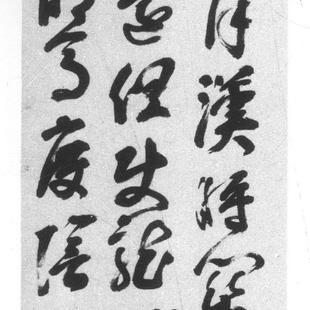 月漢時關
還但使龍
胡馬度陰